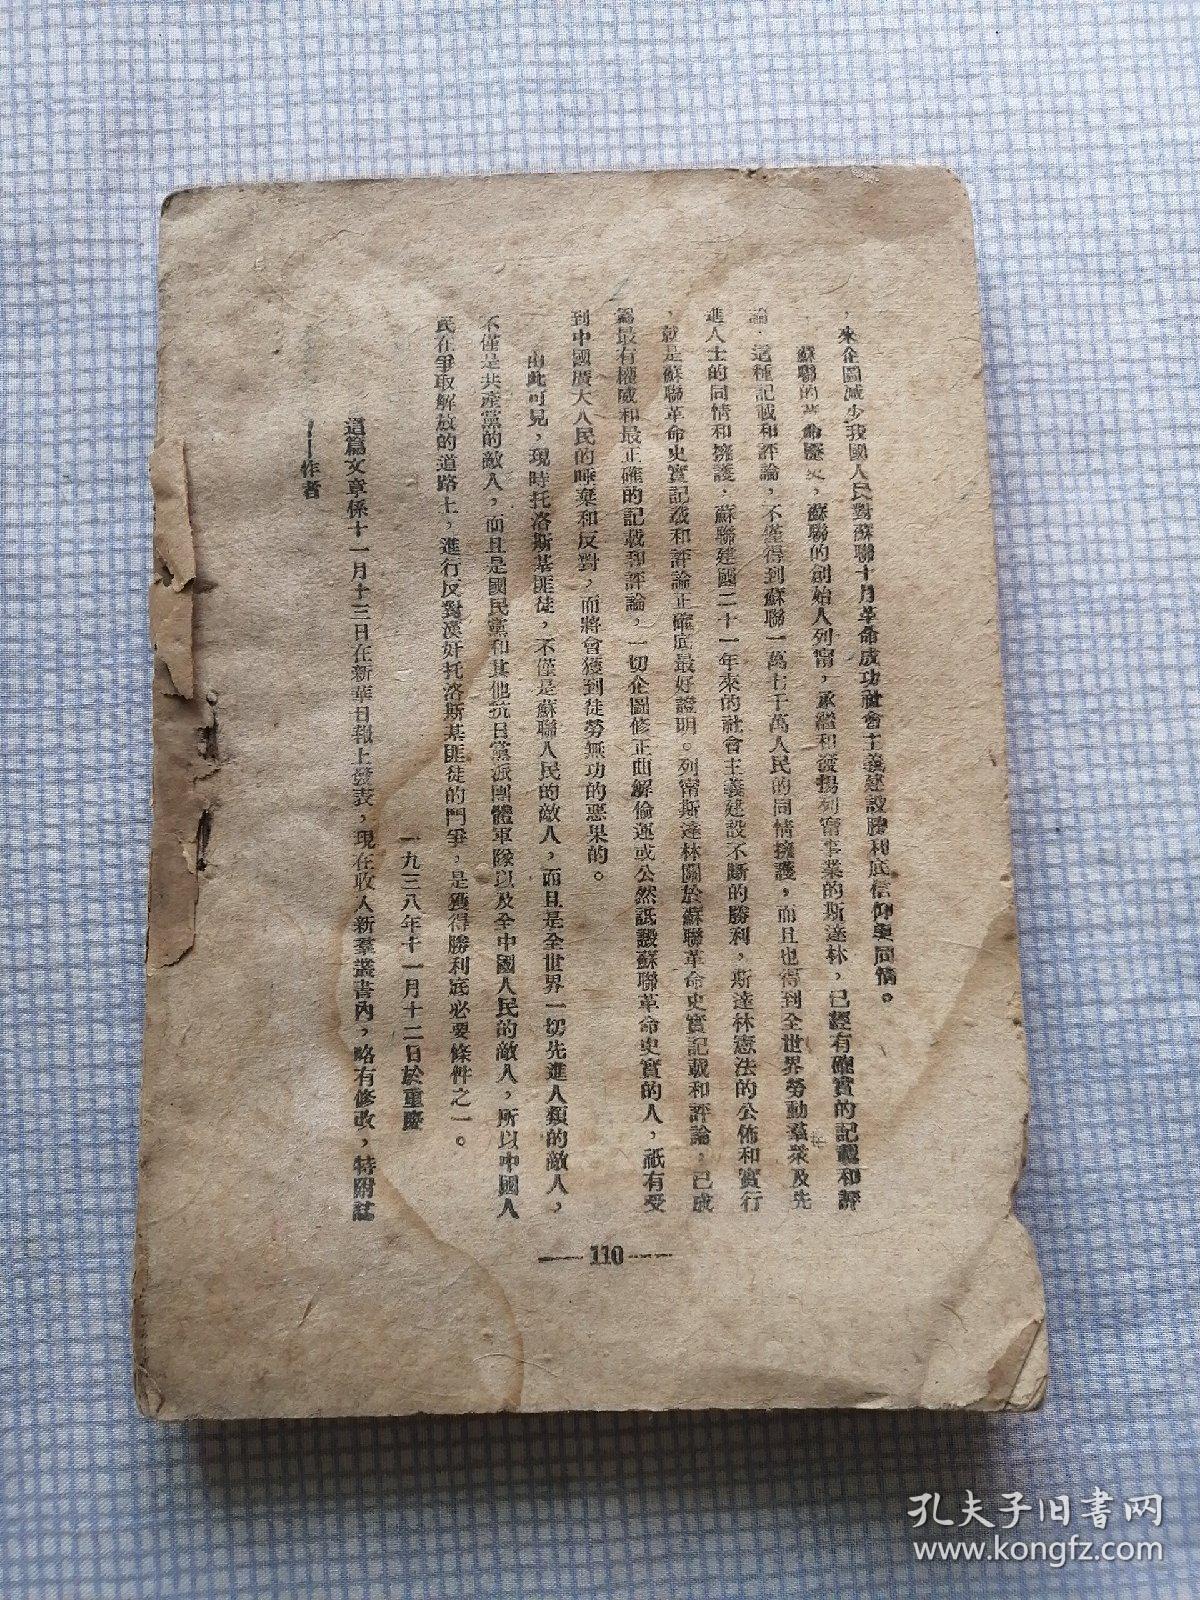 ，來企圖減少我國人民對蘇聯十月革命成功社會主義建設勝利底信仰與同情。
蘇聯的革命歷史，蘇聯的創始人列甯，承繼和發揚列甯事業的斯達林，已經有確實的記載和評
論，這種記載和評論，不僅得到蘇聯一萬七千萬人民的同情擁護，而且也得到全世界勞動羣衆及先
進人士的同情和擁護．蘇聯建國二十一年來的社會主義建設不斷的勝利，斯達林憲法的公佈和實行
，就是蘇聯革命史實記載和評論正確底最好證明。列甯斯達林關於蘇聯革命史實記載和評論，已成
爲最有權威和最正確的記載和評論，一切企圖修正曲解偷運或公然詆譭蘇聯革命史實的人，祇有受
到中國廣大人民的唾棄和反對，而將會獲到徒勞無功的惡果的。
由此可見，現時托洛斯基匪徒，不僅是蘇聯人民的敵人，而且是全世界一切先進人類的敵人，
不僅是共產黨的敵人，而且是國民黨和其他抗日黨派團體軍隊以及全中國人民的敵人，所以中國人
民在爭取解放的道路上，進行反對漢奸托洛斯基匪徒的鬥爭，是獲得勝利底必要條件之一。
一九三八年十一月十二日於重慶
這篇文章係十一月十三日在新華日報上發表，現在收入新羣叢書內，略有修改，特附誌
——作者
——110——
孔夫子旧書网
www.kongfz.com